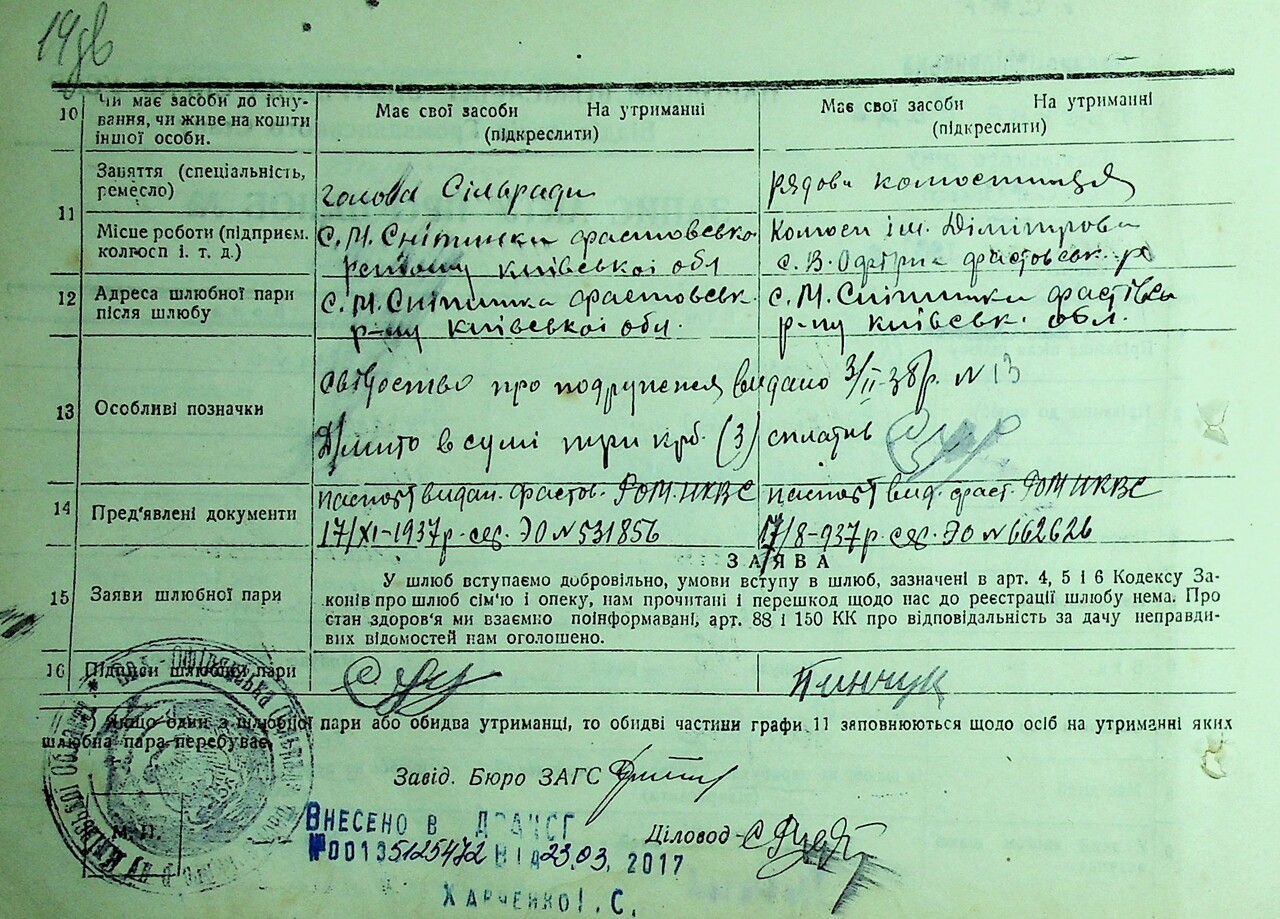 10 Чи має засоби до існу-
вання, чи живе на кошти
іншої особи.
Має свої засоби На утриманні
(підкреслити)
Має свої засоби На утриманні
(підкреслити)
11 Заняття (спеціальність,
ремесло)
голова Сільради
рядова
Місце роботи (підприєм.
колгосп і. т. д.)
с. М. Снітинки фастовсько
київської обл
ім. Дімітрова
с. В. Офірна фастовськ. р
12 Адреса шлюбної пари
після шлюбу
с. М. Снітинка фастовськ.
р-ну київської обл.
с. М. Снітинки
р-ну київськ. обл.
13 Особливі позначки
про подружжя видано 3/II-38р. N 13
Д/мито в сумі три крб. (3) сплатив
14 Пред'явлені документи
паспорт видан. фастов. РОМ. НКВС
17/XI-1937р. сер. ЭО N 531856
паспорт вид. фаст. РОМ НКВС
17/8-937р. сер. ЭО N 662626
ЗАЯВА
15 Заяви шлюбної пари
У шлюб вступаємо добровільно, умови вступу в шлюб, зазначені в арт. 4, 5 і 6 Кодексу За-
конів про шлюб сім'ю і опеку, нам прочитані і перешкод щодо нас до реєстрації шлюбу нема. Про
стан здоров'я ми взаємно поінформавані, арт. 88 і 150 КК про відповідальність за дачу неправди-
вих відомостей нам оголошено.
16 Підписи шлюбної пари
Пинчук
) Якщо один з шлюбної пари або обидва утриманці, то обидві частини графи 11 заповнюються щодо осіб на утриманні яких
шлюбна пара перебуває.
Завід. Бюро ЗАГС
М. П.
Внесено в ДРАЦСГ
№00135125472 від 23.03. 2017
Діловод
Харченко І. С.